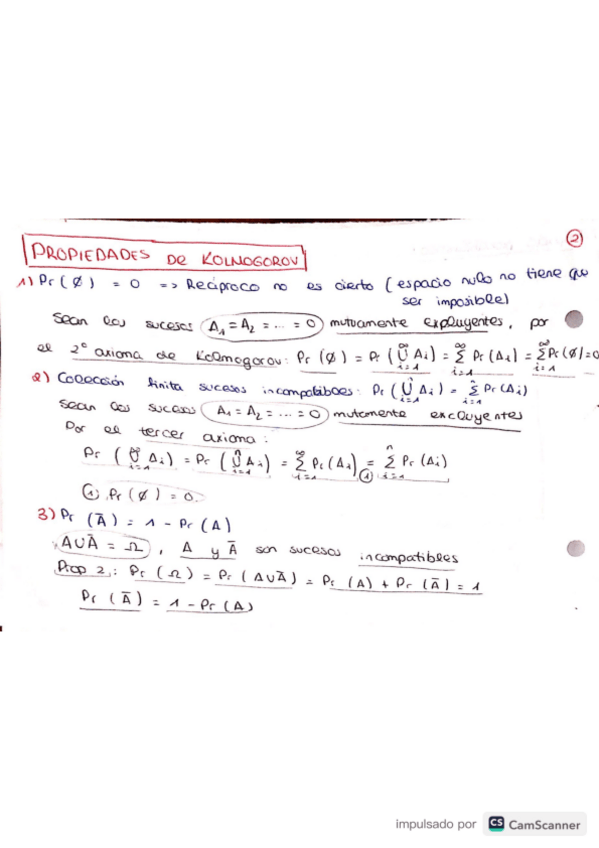 ②
PROPIEDADES DE KOLMOGOROV
1) Pr (∅) = 0 => Recíproco no es cierto (espacio nulo no tiene que
ser imposible)
Sean los sucesos A₁ = A₂ = ... = 0 mutuamente expluyentes, por
el 2º axioma de Kolmogorov: Pr (∅) = Pr (⋃_{i=1}^{∞} A_i) = ∑_{i=1}^{∞} Pr (A_i) = ∑_{i=1}^{∞} Pr (∅) = 0
2) Colección finita sucesos incompatibles: Pr (⋃_{i=1}^{n} A_i) = ∑_{i=1}^{n} Pr (A_i)
Sean los sucesos A₁ = A₂ = ... = 0 mutamente excluyentes
Por el tercer axioma:
Pr (⋃_{i=1}^{∞} A_i) = Pr (⋃_{i=1}^{n} A_i) = ∑_{i=1}^{∞} Pr (A_i) =① ∑_{i=1}^{n} Pr (A_i)
① Pr (∅) = 0
3) Pr (Ā) = 1 - Pr (A)
A∪Ā = Ω, A y Ā son sucesos incompatibles
Prop 2: Pr (Ω) = Pr (A∪Ā) = Pr (A) + Pr (Ā) = 1
Pr (Ā) = 1 - Pr (A)
impulsado por CS CamScanner